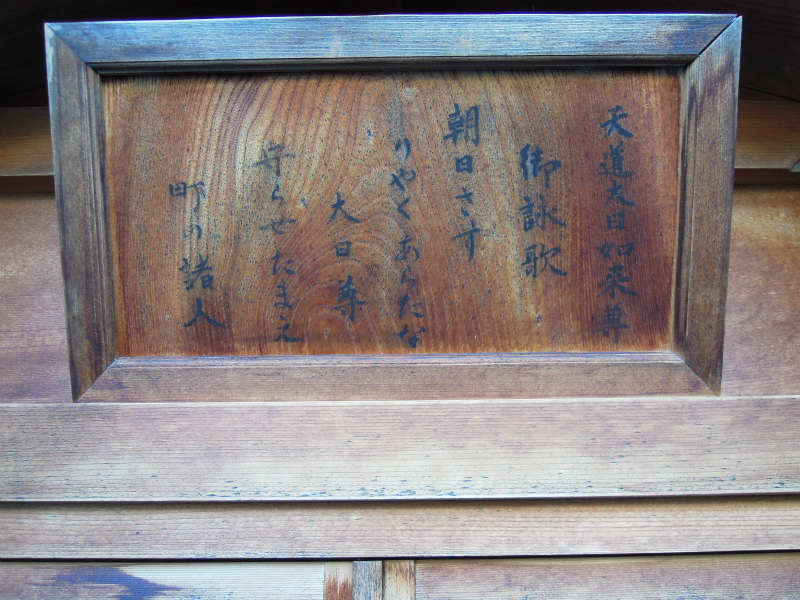 天道大日如来尊
御詠歌
朝日さす
りやくあらたな
大日尊
守らせたまえ
町の諸人